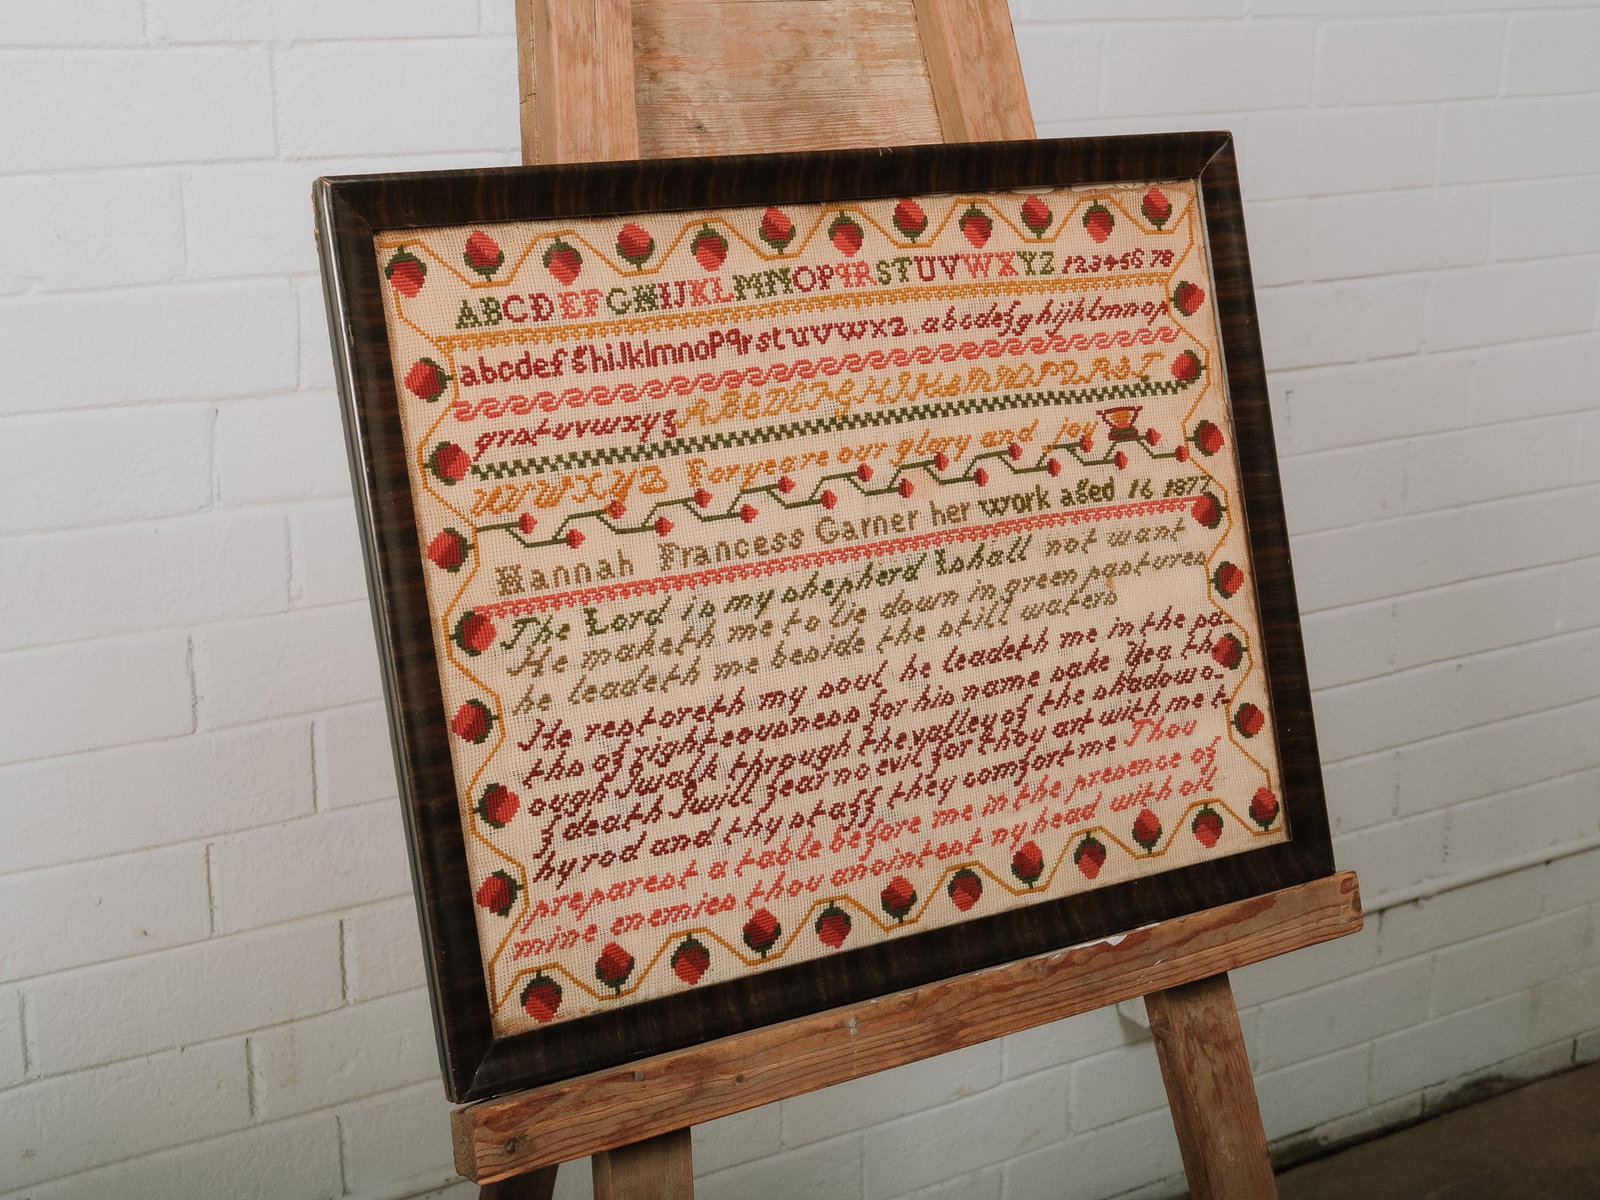 ABCDEFGHIJKLMNOPQRSTUVWXYZ 12345678
abcdefghiJklmnoPqrstuvwxz.abcdefghijklmnop
qrstuvwxyz ABCDEFGHIJKLMNOPQRST
UVWXYZ For ye are our glory and joy
Hannah Francess Garner her work aged 16 1877
The Lord is my shepherd Ishall not want
He maketh me to lie down in green pastures
he leadeth me beside the still waters
He restoreth my soul he leadeth me in the pa-
ths of righteousness for his name sake Yea th
ough Iwalk through the valley of the shadow o-
f death Iwill fear no evil for thou art with me t-
hy rod and thy staff they comfort me Thou
preparest a table before me in the presence of
mine enemies thou anointest my head with oil